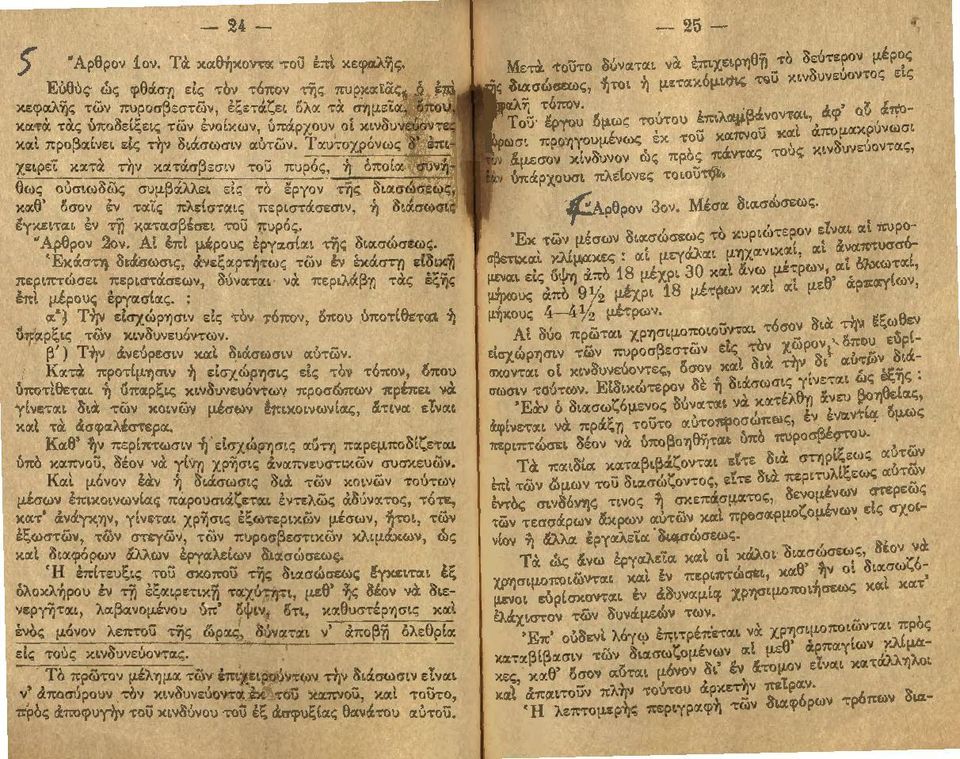 — 24 —
5 Ἄρθρον 1ον. Τὰ καθήκοντα τοῦ ἐπὶ κεφαλῆς.
Εὐθὺς ὡς φθάσῃ εἰς τὸν τόπον τῆς πυρκαϊᾶς, ὁ ἐπὶ
κεφαλῆς τῶν πυροσβεστῶν, ἐξετάζει ὅλα τὰ σημεῖα, ὅπου,
κατὰ τὰς ὑποδείξεις τῶν ἐνοίκων, ὑπάρχουν οἱ κινδυνεύοντες
καὶ προβαίνει εἰς τὴν διάσωσιν αὐτῶν. Ταυτοχρόνως δ' ἐπι-
χειρεῖ κατὰ τὴν κατάσβεσιν τοῦ πυρός, ἡ ὁποία συνή-
θως οὐσιωδῶς συμβάλλει εἰς τὸ ἔργον τῆς διασώσεως,
καθ' ὅσον ἐν ταῖς πλείσταις περιστάσεσιν, ἡ διάσωσις
ἔγκειται ἐν τῇ κατασβέσει τοῦ πυρός.
Ἄρθρον 2ον. Αἱ ἐπὶ μέρους ἐργασίαι τῆς διασώσεως.
Ἑκάστη διάσωσις, ἀνεξαρτήτως τῶν ἐν ἑκάστῃ εἰδικῇ
περιπτώσει περιστάσεων, δύναται νὰ περιλάβῃ τὰς ἑξῆς
ἐπὶ μέρους ἐργασίας. :
α') Τὴν εἰσχώρησιν εἰς τὸν τόπον, ὅπου ὑποτίθεται ἡ
ὕπαρξις τῶν κινδυνευόντων.
β') Τὴν ἀνεύρεσιν καὶ διάσωσιν αὐτῶν.
Κατὰ προτίμησιν ἡ εἰσχώρησις εἰς τὸν τόπον, ὅπου
ὑποτίθεται ἡ ὕπαρξις κινδυνευόντων προσώπων πρέπει νὰ
γίνεται διὰ τῶν κοινῶν μέσων ἐπικοινωνίας, ἅτινα εἶναι
καὶ τὰ ἀσφαλέστερα.
Καθ' ἣν περίπτωσιν ἡ εἰσχώρησις αὕτη παρεμποδίζεται
ὑπὸ καπνοῦ, δέον νὰ γίνῃ χρῆσις ἀναπνευστικῶν συσκευῶν.
Καὶ μόνον ἐὰν ἡ διάσωσις διὰ τῶν κοινῶν τούτων
μέσων ἐπικοινωνίας παρουσιάζεται ἐντελῶς ἀδύνατος, τότε,
κατ' ἀνάγκην, γίνεται χρῆσις ἐξωτερικῶν μέσων, ἤτοι, τῶν
ἐξωστῶν, τῶν στεγῶν, τῶν πυροσβεστικῶν κλιμάκων, ὡς
καὶ διαφόρων ἄλλων ἐργαλείων διασώσεως.
Ἡ ἐπίτευξις τοῦ σκοποῦ τῆς διασώσεως ἔγκειται ἐξ
ὁλοκλήρου ἐν τῇ ἐξαιρετικῇ ταχύτητι, μεθ' ἧς δέον νὰ διε-
νεργῆται, λαβανομένου ὑπ' ὄψιν, ὅτι, καθυστέρησις καὶ
ἑνὸς μόνον λεπτοῦ τῆς ὥρας, δύναται ν' ἀποβῇ ὀλεθρία
εἰς τοὺς κινδυνεύοντας.
Τὸ πρῶτον μέλημα τῶν ἐπιχειρούντων τὴν διάσωσιν εἶναι
ν' ἀποσύρουν τὸν κινδυνεύοντα ἐκ τοῦ καπνοῦ, καὶ τοῦτο,
πρὸς ἀποφυγὴν τοῦ κινδύνου τοῦ ἐξ ἀσφυξίας θανάτου αὐτοῦ.
— 25 —
Μετὰ τοῦτο δύναται νὰ ἐπιχειρηθῇ τὸ δεύτερον μέρος
τῆς διασώσεως, ἤτοι ἡ μετακόμισις τοῦ κινδυνεύοντος εἰς
ἀσφαλῆ τόπον.
Τοῦ ἔργου ὅμως τούτου ἐπιλαμβάνονται, ἀφ' οὗ ἀπο-
σύρωσι προηγουμένως ἐκ τοῦ καπνοῦ καὶ ἀπομακρύνωσι
τὸν ἄμεσον κίνδυνον ὡς πρὸς πάντας τοὺς κινδυνεύοντας,
ἐὰν ὑπάρχουσι πλείονες τοιοῦτοι.
Ἄρθρον 3ον. Μέσα διασώσεως.
Ἐκ τῶν μέσων διασώσεως τὸ κυριώτερον εἶναι αἱ πυρο-
σβετικαὶ κλίμακες : αἱ μεγάλαι μηχανικαί, αἱ ἀναπτυσσό-
μεναι εἰς ὕψη ἀπὸ 18 μέχρι 30 καὶ ἄνω μέτρων, αἱ ὁλκωταί,
μήκους ἀπὸ 9½ μέχρι 18 μέτρων καὶ αἱ μεθ' ἁρπαγίων,
μήκους 4—4½ μέτρων.
Αἱ δύο πρῶται χρησιμοποιοῦνται τόσον διὰ τὴν ἔξωθεν
εἰσχώρησιν τῶν πυροσβεστῶν εἰς τὸν χῶρον, ὅπου εὑρί-
σκονται οἱ κινδυνεύοντες, ὅσον καὶ διὰ τὴν δι' αὐτῶν διά-
σωσιν τούτων. Εἰδικώτερον δὲ ἡ διάσωσις γίνεται ὡς ἑξῆς :
Ἐὰν ὁ διασωζόμενος δύναται νὰ κατέλθῃ ἄνευ βοηθείας,
ἀφίνεται νὰ πράξῃ τοῦτο αὐτοπροσώπως, ἐν ἐναντίᾳ ὅμως
περιπτώσει δέον νὰ ὑποβοηθῆται ὑπὸ πυροσβέστου.
Τὰ παιδία καταβιβάζονται εἴτε διὰ στηρίξεως αὐτῶν
ἐπὶ τῶν ὤμων τοῦ διασώζοντος, εἴτε διὰ περιτυλίξεως αὐτῶν
ἐντὸς σινδόνης τινος ἢ σκεπάσματος, δενομένων στερεῶς
τῶν τεσσάρων ἄκρων αὐτῶν καὶ προσαρμοζομένων εἰς σχοι-
νίον ἢ ἄλλα ἐργαλεῖα διασώσεως.
Τὰ ὡς ἄνω ἐργαλεῖα καὶ οἱ κάλοι διασώσεως, δέον νὰ
χρησιμοποιῶνται καὶ ἐν περιπτώσει, καθ' ἣν οἱ διασωζό-
μενοι εὑρίσκονται ἐν ἀδυναμίᾳ χρησιμοποιήσεως καὶ κατ'
ἐλάχιστον τῶν δυνάμεών των.
Ἐπ' οὐδενὶ λόγῳ ἐπιτρέπεται νὰ χρησιμοποιῶνται πρὸς
καταβίβασιν τῶν διασωζομένων αἱ μεθ' ἁρπαγίων κλίμα-
κες, καθ' ὅσον αὗται μόνον δι' ἓν ἄτομον εἶναι κατάλληλοι
καὶ ἀπαιτοῦν πλὴν τούτου ἀρκετὴν πεῖραν.
Ἡ λεπτομερὴς περιγραφὴ τῶν διαφόρων τρόπων δια-